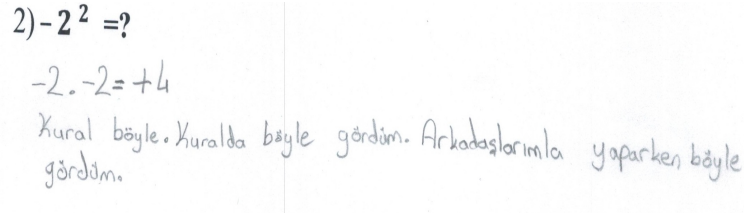 2) -2² =?
-2. -2= +4
Kural böyle. Kuralda böyle gördüm. Arkadaşlarımla yaparken böyle
gördüm.